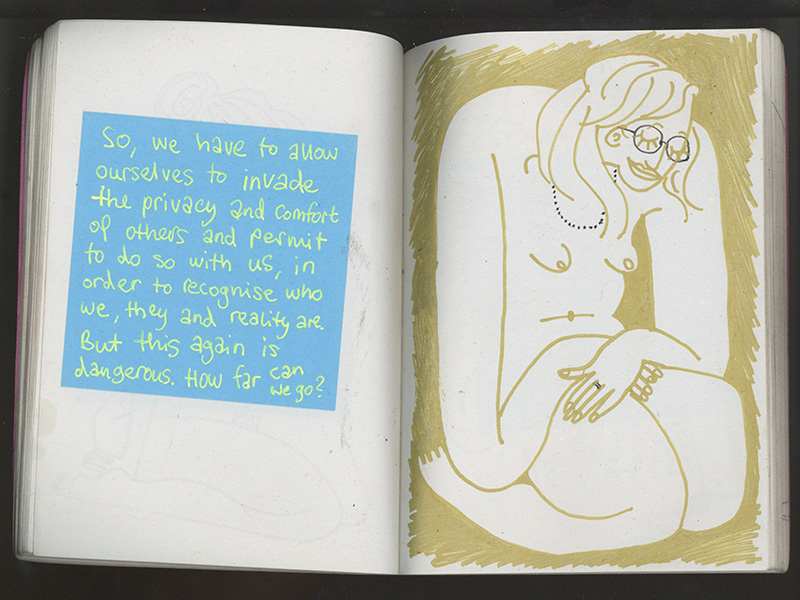 So, we have to allow
ourselves to invade
the privacy and comfort
of others and permit
to do so with us, in
order to recognise who
we, they and reality are.
But this again is
dangerous. How far can
we go?